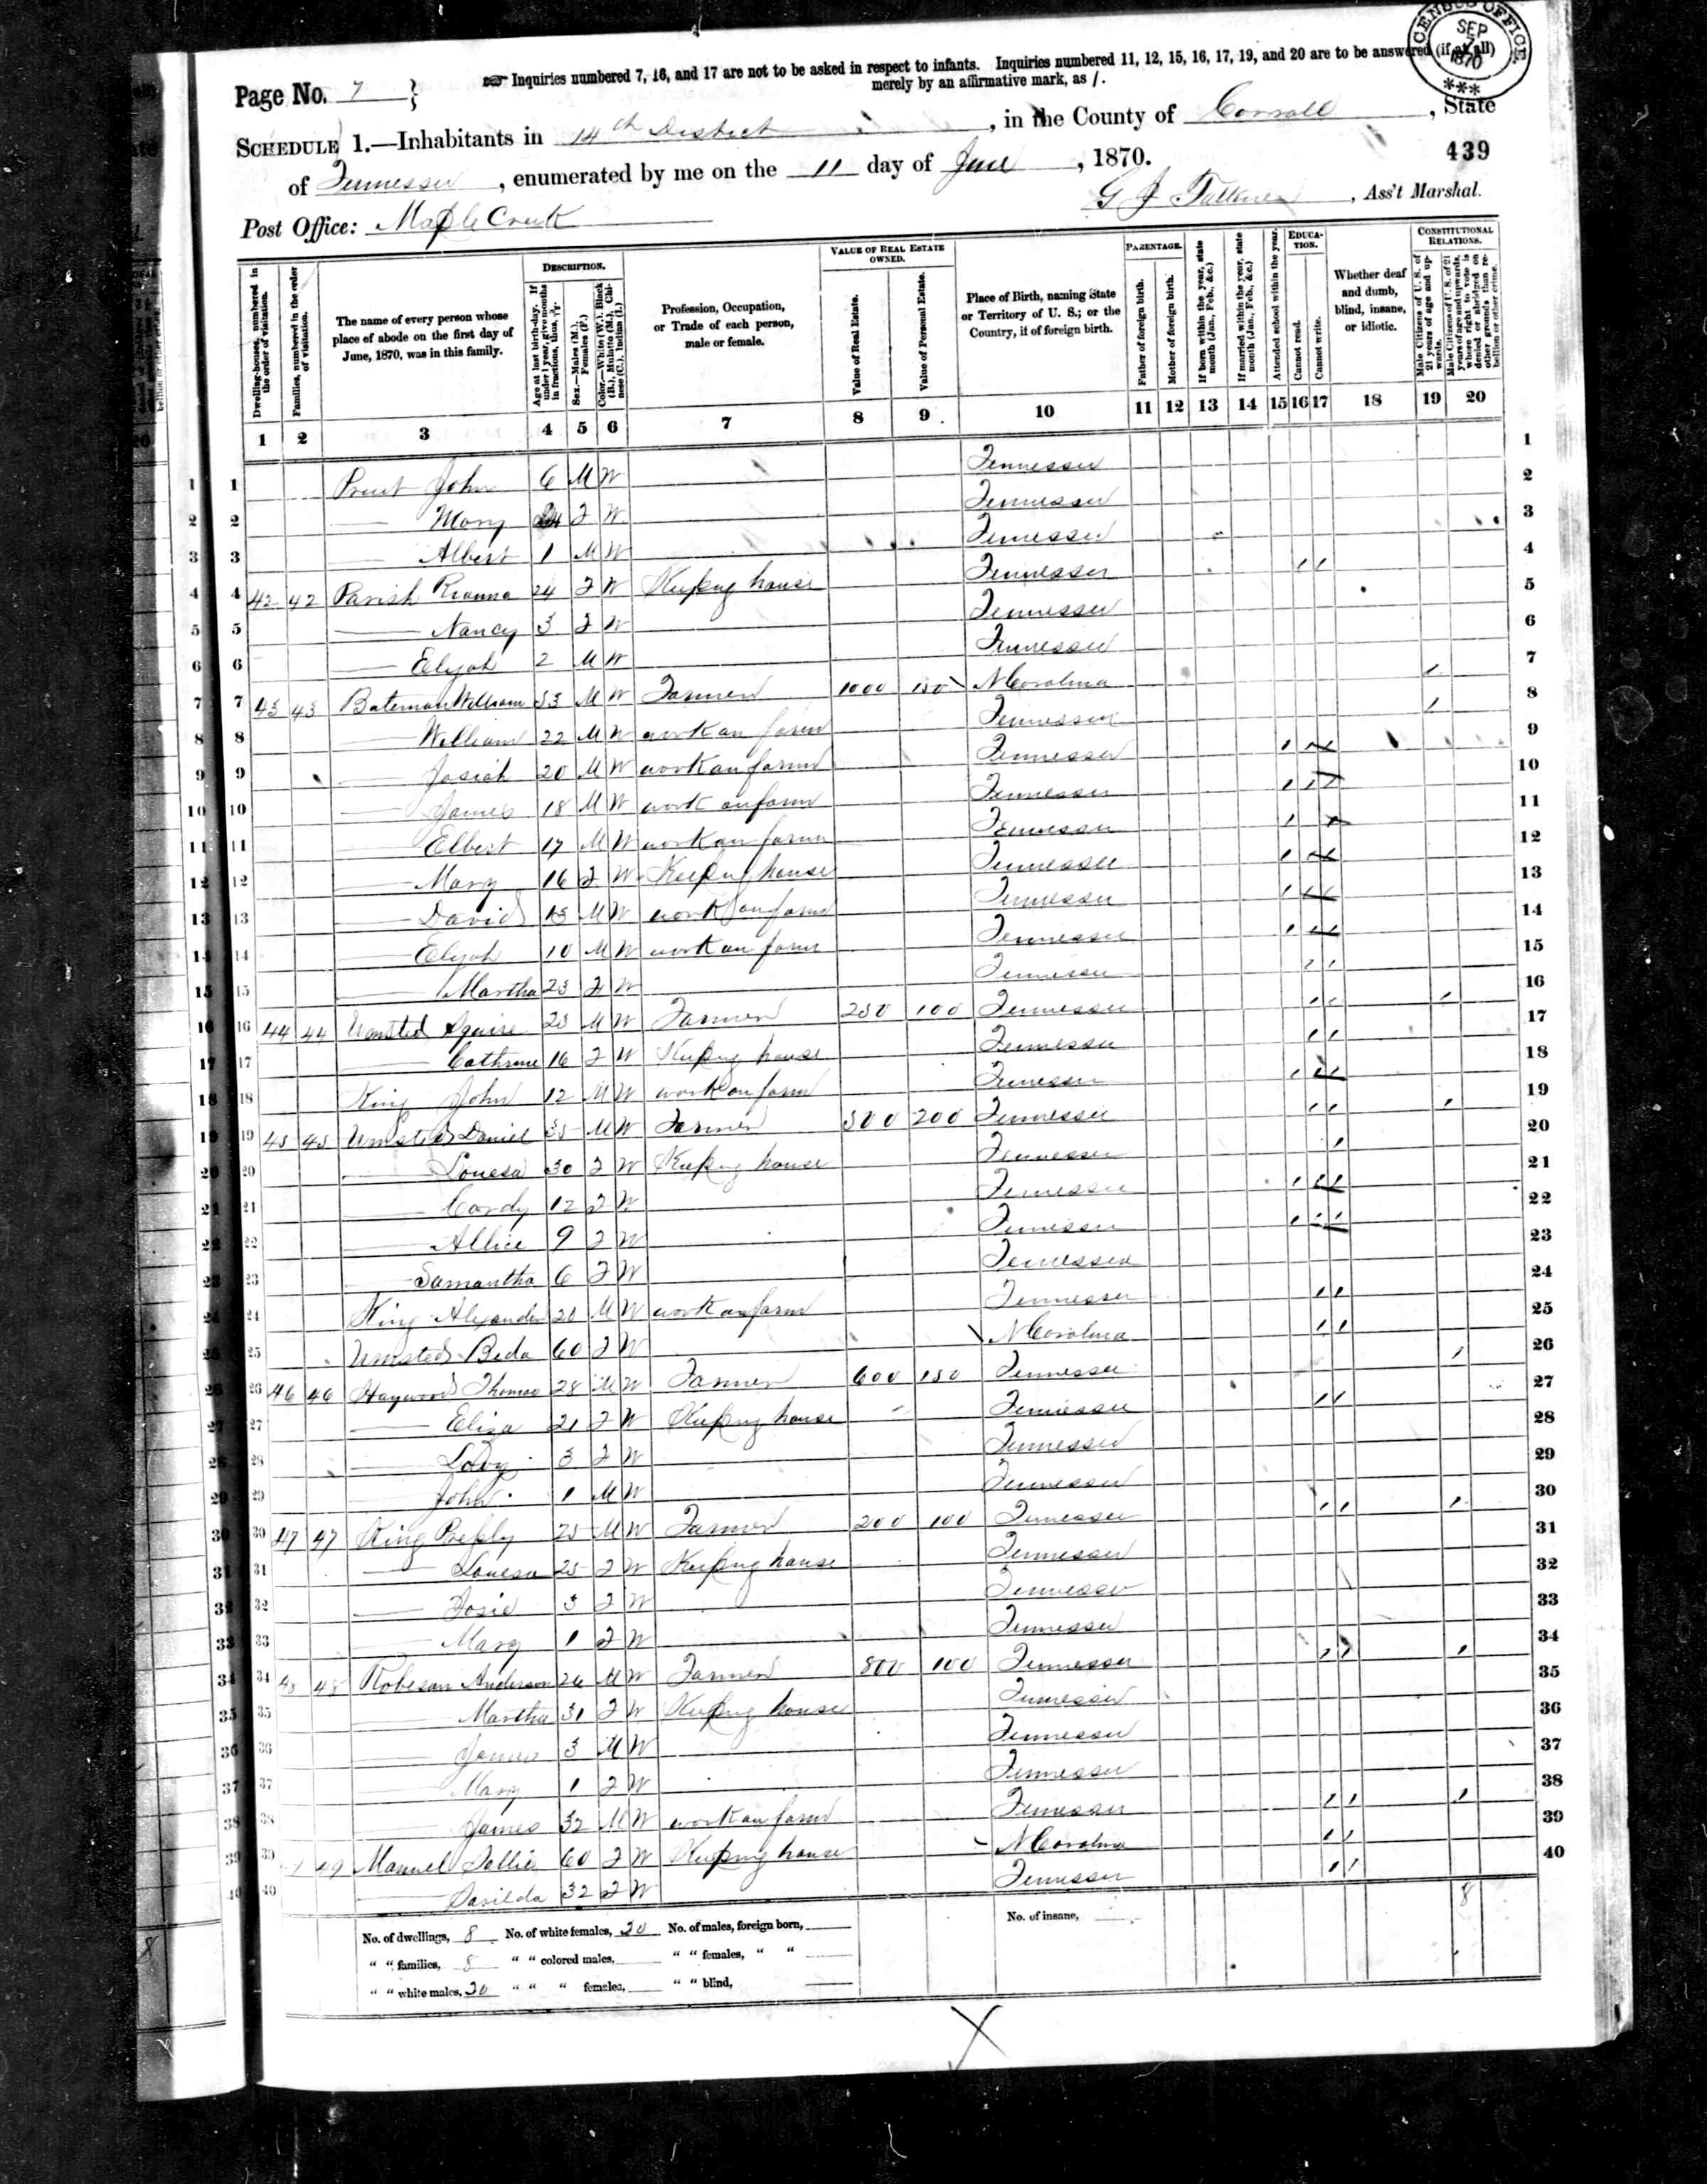 CENSUS OFFICE
SEP
7
1870
***
☞ Inquiries numbered 7, 16, and 17 are not to be asked in respect to infants. Inquiries numbered 11, 12, 15, 16, 17, 19, and 20 are to be answered (if at all)
merely by an affirmative mark, as /.
Page No. 7
SCHEDULE 1.—Inhabitants in 14th District, in the County of Carroll, State
439
of Tennessee, enumerated by me on the 11 day of June, 1870.
G J, Ass't Marshal.
Post Office: Maple Creek
Dwelling-houses, numbered in the order of visitation.
Families, numbered in the order of visitation.
The name of every person whose place of abode on the first day of June, 1870, was in this family.
DESCRIPTION.
Age at last birth-day. If under 1 year, give months in fractions, thus, 3/12.
Sex.—Males (M.), Females (F.)
Color.—White (W.), Black (B.), Mulatto (M.), Chinese (C.), Indian (I.)
Profession, Occupation, or Trade of each person, male or female.
VALUE OF REAL ESTATE OWNED.
Value of Real Estate.
Value of Personal Estate.
Place of Birth, naming State or Territory of U. S.; or the Country, if of foreign birth.
PARENTAGE.
Father of foreign birth.
Mother of foreign birth.
If born within the year, state month (Jan., Feb., &c.)
If married within the year, state month (Jan., Feb., &c.)
Attended school within the year.
EDUCATION.
Cannot read.
Cannot write.
Whether deaf and dumb, blind, insane, or idiotic.
CONSTITUTIONAL RELATIONS.
Male Citizens of U. S. of 21 years of age and upwards.
Male Citizens of U. S. of 21 years of age and upwards, whose right to vote is denied or abridged on other grounds than rebellion or other crime.
1 2 3 4 5 6 7 8 9 10 11 12 13 14 15 16 17 18 19 20
1 John 6 M W Tennessee 1
2 — Mary F W Tennessee 2
3 — Albert 1 M W Tennessee 3
4 42 42 Parish 24 F W Keeping house Tennessee / / 4
5 — Nancy 3 F W Tennessee 5
6 — Elijah 2 M W Tennessee 6
7 43 43 Bateman William 53 M W Farmer 1000 150 N Carolina / 7
8 — William 22 M W work on farm Tennessee / 8
9 — Josiah 20 M W work on farm Tennessee / / / 9
10 — James 18 M W work on farm Tennessee / / / 10
11 — Elbert 17 M W work on farm Tennessee / 11
12 — Mary 16 F W Keeping house Tennessee / / / 12
13 — David 13 M W work on farm Tennessee / / / 13
14 — Elijah 10 M W work on farm Tennessee / / / 14
15 — Martha 23 F W Tennessee / / 15
16 44 44 Umsted Squire 23 M W Farmer 250 100 Tennessee / / / 16
17 — Cathrine 16 F W Keeping house Tennessee / / 17
18 King John 12 M W work on farm Tennessee / / / 18
19 45 45 Umsted Daniel 35 M W Farmer 300 200 Tennessee / / / 19
20 — Louesa 30 F W Keeping house Tennessee / 20
21 — Cordy 12 F W Tennessee / / / 21
22 — Allice 9 F W Tennessee / / / 22
23 — Samantha 6 F W Tennessee 23
24 King Alexander 20 M W work on farm Tennessee / / 24
25 Umsted Beda 60 F W N Carolina / / 25
26 46 46 Haywood Thomas 28 M W Farmer 600 150 Tennessee / 26
27 — Eliza 21 F W Keeping house Tennessee / / 27
28 — 3 F W Tennessee 28
29 — John 1 M W Tennessee 29
30 47 47 King 25 M W Farmer 200 100 Tennessee / / / 30
31 — Louesa 25 F W Keeping house Tennessee 31
32 — Josie 3 F W Tennessee 32
33 — Mary 1 F W Tennessee 33
34 48 48 Robeson Anderson 26 M W Farmer 800 100 Tennessee / / / 34
35 — Martha 31 F W Keeping house Tennessee 35
36 — James 3 M W Tennessee 36
37 — Mary 1 F W Tennessee 37
38 — James 32 M W work on farm Tennessee / / / 38
39 49 Manuel 60 F W Keeping house N Carolina / / 39
40 — 32 F W Tennessee / / 40
8
No. of dwellings, 8 No. of white females, 20 No. of males, foreign born, No. of insane,
" " families, 8 " " colored males, " " females, " "
" " white males, 20 " " " females, " " blind,